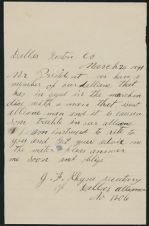 Dallas Newton Co
March 20 1891
Mr. President we have a
member of our alliance that
has in
done with a man that is not
alliance man and it is causing
some trouble in our alliance
I am instructed to rite to
you and get your advice on
the matter please answer
me soon and oblige
J. F. Payne secretary
of Dallas alliance
No 1606